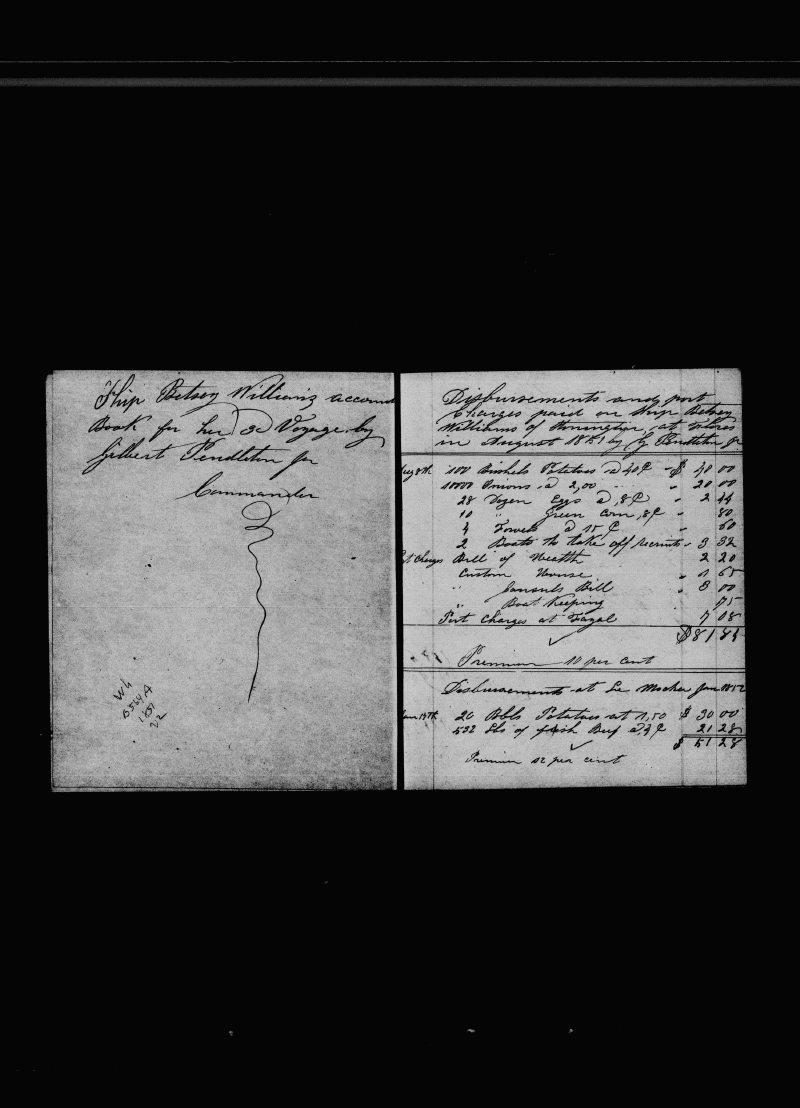 Ship Betsey Williams account
Book for her 3d Voyage by
Gilbert Pendleton jr
Commander
Wh
B564A
1851
v.2
Disbursements and port
Charges paid on Ship Betsey
Williams of Stonington, at
in August 1851 by G Pendleton jr
Aug 8th 100 Bushels Potatoes a 40¢ - $ 40 00
10000 Onions a 2,00 " 20 00
28 Dozen Eggs a ,8¢ " 2 44
10 " Green Corn ,8¢ " 80
4 Fowels a 15¢ " 60
2 Boats to take off recruits - 3 32
Port Charges Bill of Health 2 20
Custom House " 1 65
" Consuls Bill . 8 00
" Boat Keeping 75
Port Charges at Fayal 7 08
$ 81 84
Premium 10 per cent
Disbursements at Mocha Jan 1852
Jan 19th 20 Bbls Potatoes at 1,50 $ 30 00
532 Lbs of fresh Beef a ,4¢ 21 28
$ 51 28
Premium 12 per cent